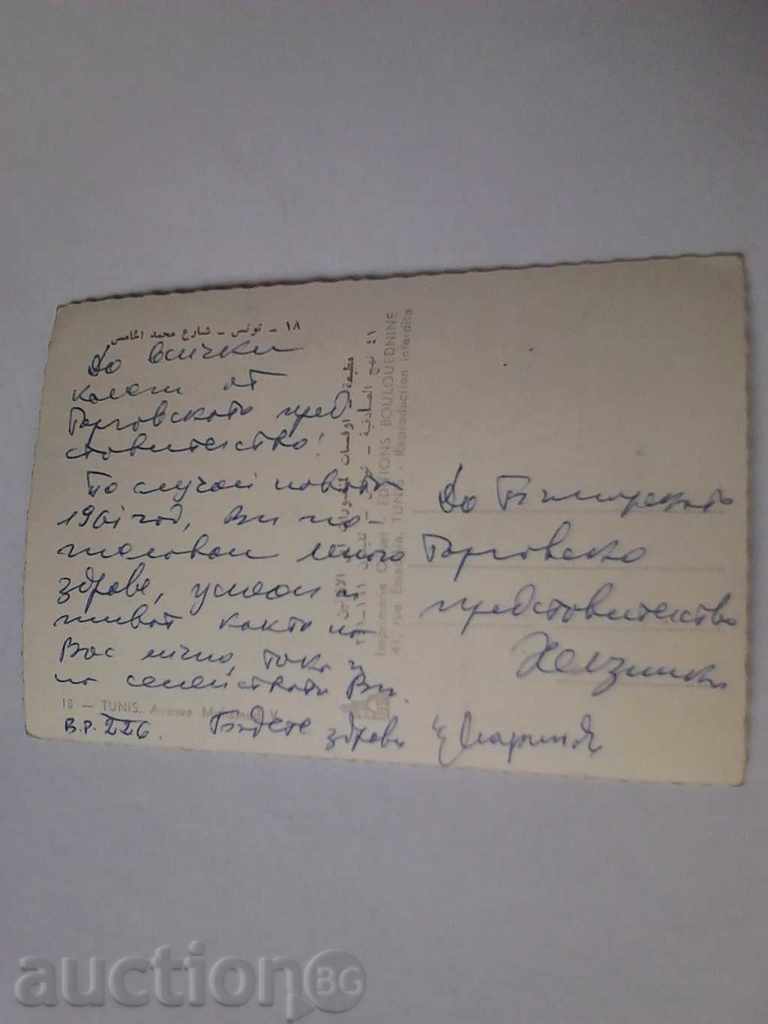 ١٨ - تونس - شارع محمد الخامس
До всички
колеги от
Търговското пред-
ставителство!
По случай новата
1961 год, Ви по-
желавам много
здраве, успехи и
живот както на
Вас лично, така и
на семействата Ви.
18 — TUNIS. Avenue V
В.Р. 226. Бъдете здрави
EDITIONS BOULOUEDNINE
41, rue TUNIS - Reproduction interdite
До Българското
Търговско
представителство
Хелзинки
auctionBG